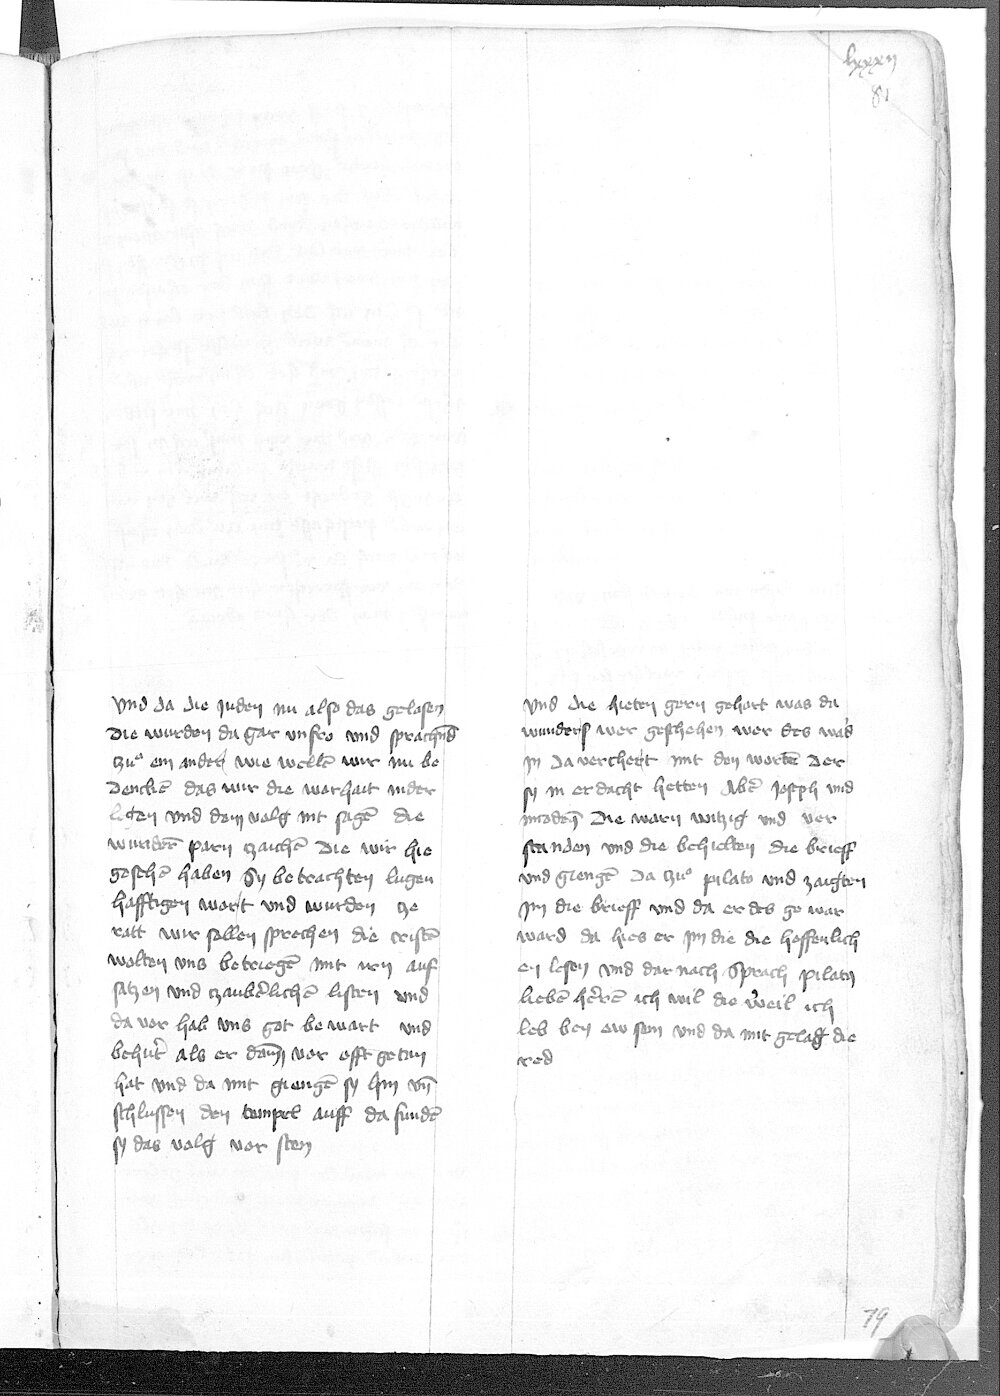 lxxxij
81
Und da die juden nu also das gelasen
Die wurden da gar unfro und sprachend
czuͦ ein ander wie wellē wir nu be
denckē das wir die warhait nider
legen und dem volg nit sagē die
wunderē parn zaichē Die wir hie
gesehē haben Sy betrachten lugen
hafftigen wort und wurden ze
ratt wir sollen sprechen die cristē
wolten uns betriegē mit irn auf
satzen und zauberlichē listen und
da vor hab uns got bewart und
behut als er dann vor offt getan
hat und da mit giengē sy hin vn̄
schlussen den tempel auff da fundē
sy das volg vor sten
Und die hieten gern gehort was da
wunders wer geschehen wer des ward
in da verchert mit den wortē Der
sy in er dacht hetten Aber Joseph und
nicodem Die warn witzig und ver
standen und die behielten die brieff
und giengē Da czuͦ pilato und zaigten
im die brieff und da er des ge war
ward da hies er im die die hoffenlich
en lesen und dar nach sprach pilatus
liebē herrē ich wil die weil ich
leb bey ew sein und da mit gelag die
red
79